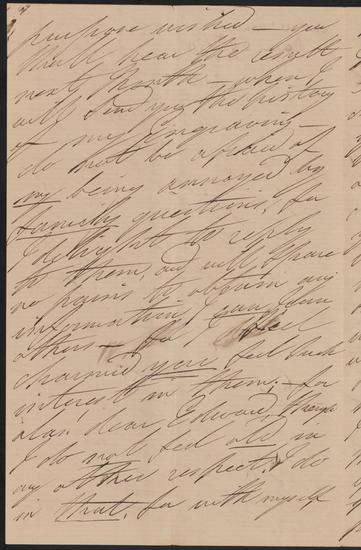 purpose wished – you
shall hear the result
next month – when I
will send you the history
of my Engraving –
do not be afraid of
my being annoyed by
family questions, for
I delight to reply
to them, and will spare
no pains to obtain any
information I can from
others – for I feel
charmed you feel such
interest in them; – for
alas. dear Edward, though
I do not feel old in
any other respect, I do
in that, for with myself